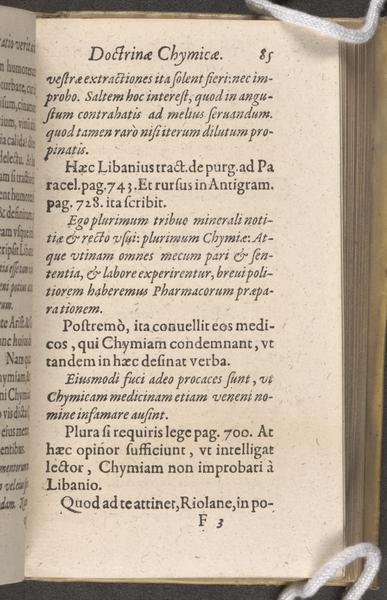 Doctrinæ Chymicæ. 85
vestræ extractiones ita solent fieri: nec im-
probo. Saltem hoc interest, quod in angu-
stum contrahatis ad melius seruandum.
quod tamen raro nisi iterum dilutum pro-
pinatis.
Hæc Libanius tract. de purg. ad Pa
racel. pag. 743. Et rursus in Antigram.
pag. 728. ita scribit.
Ego plurimum tribuo minerali noti-
tiæ & recto vsui: plurimum Chymiæ: At-
que vtinam omnes mecum pari & sen-
tentia, & labore experirentur, breui poli-
tiorem haberemus Pharmacorum præpa
rationem.
Postremò, ita conuellit eos medi-
cos, qui Chymiam condemnant, vt
tandem in hæc desinat verba.
Eiusmodi fuci adeo procaces sunt, vt
Chymicam medicinam etiam veneni no-
mine infamare ausint.
Plura si requiris lege pag. 700. At
hæc opinor sufficiunt, vt intelligat
lector, Chymiam non improbari à
Libanio.
Quod ad te attinet, Riolane, in po-
F 3